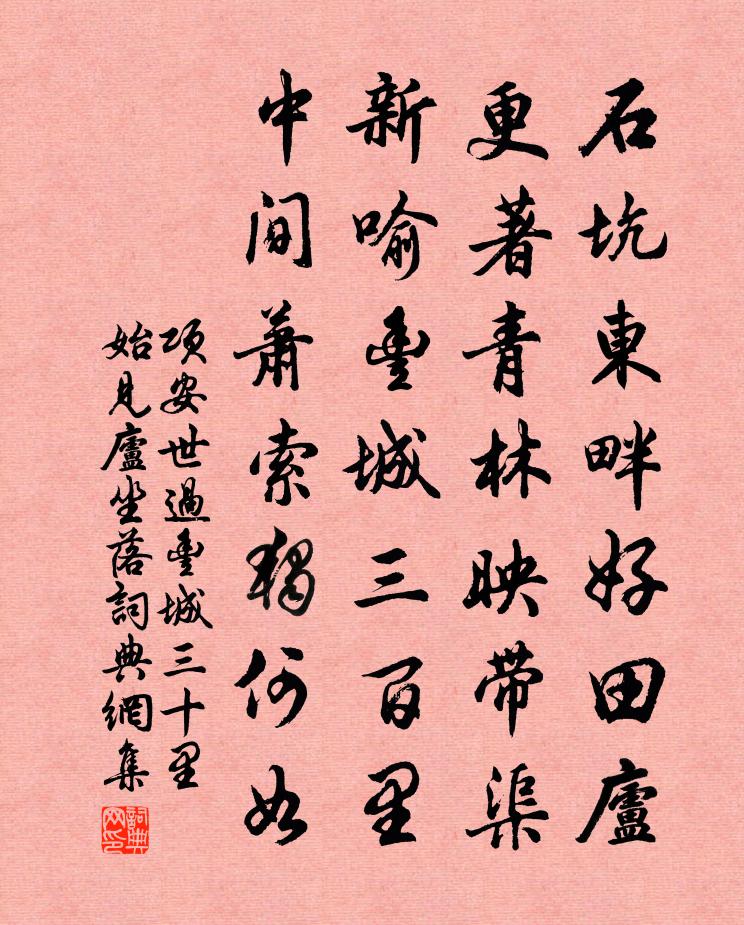 石坑東畔好田廬
更著青林映帶渠
新喻豐城三百里
中間蕭索獨何如
項安世過豐城三十里
始見廬坐落詞典網集
詞典
网印